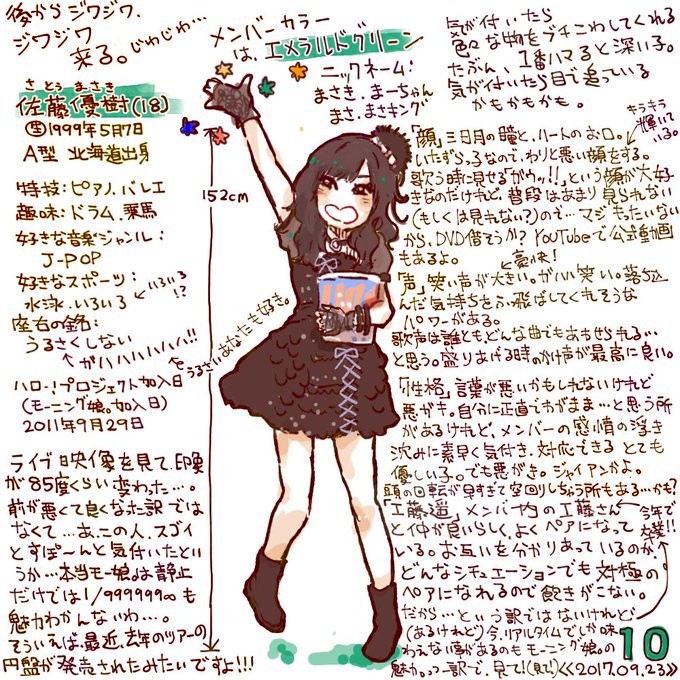 後からジワジワ、
ジワジワ
来る。じわじわ…
メンバーカラー
は、エメラルドグリーン
ニックネーム:
まさき、まーちゃん
まさ、まさキング
さとう まさき
佐藤優樹(18)
生1999年5月7日
A型 北海道出身
特技:ピアノ、バレエ
趣味:ドラム、乗馬
好きな音楽ジャンル:
J-POP
好きなスポーツ:
水泳、いろいろ
いろいろ!?
座右の銘:
うるさくしない
ガハハハハハハ!!
うるさいあなたも好き。
ハロー!プロジェクト加入日
(モーニング娘。加入日)
2011年9月29日
152cm
ライブ映像を見て、印象
が85度くらい変わった…。
前が悪くて良くなった訳では
なくて…あ、この人、スゴイ
とすぽ〜んと気付いたとい
うか…本当モー娘。は静止
画だけでは1/999999∞も
魅力わかんないわ…。
そういえば、最近、去年のツアーの
円盤が発売されたみたいですよ!!!
気が付いたら
色々な物をブチこわしてくれる
たぶん、1番ハマると深い子。
気が付いたら目で追っている
かもかもかも。
キラキラ
輝いて
いる。
「顔」三日月の瞳と、ハートのお口。
いたずらっ子なので、わりと悪い顔をする。
歌う時に見せる「ガウッ!!」という顔が大好
きなのだけれど、普段はあまり見られない
(もしくは見れない?)ので…マジもったいない
から、DVD借そうか?YouTubeで公式動画
もあるよ。
豪快!
「声」笑い声が大きい。ガハハ笑い。落ち込
んだ気持ちをふっ飛ばしてくれそうな
パワーがある。
歌声は誰ともどんな曲でもあわせられる…
と思う。盛りあげる時のかけ声が最高に良い。
「性格」言葉が悪いかもしれないけれど
悪ガキ。自分に正直でわがまま…と思う所
があるけれど、メンバーの感情の浮き
沈みに素早く気付き、対応できるとても
優しい子。でも悪ガキ。ジャイアンかよ。
頭の回転が早すぎて空回りしちゃう所もある…かも?
「工藤遥」メンバー内の工藤さん
と仲が良いらしく、よくペアになって
いる。お互いを分かりあっているのか、
どんなシチュエーションでも対極の
ペアになれるので飽きがこない。
今年で
卒業!!
だから…という訳ではないけれど
(あるけれど)今、リアルタイムでしか味
わえない事があるのもモーニング娘。の
魅力。って訳で、見て!(見て!)《2017.09.23》
10